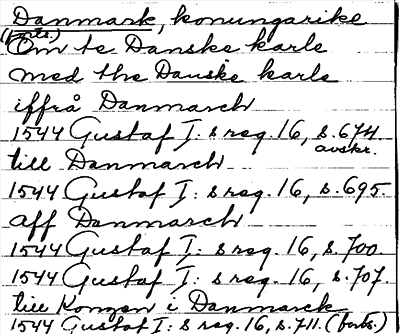 Danmark, konungarike
(forts.)
Om te Danske karle
med the Danske karle
iffrå Danmarch
1544 Gustaf I: s reg. 16, s. 674
avskr.
till Danmarch
1544 Gustaf I: s reg. 16, s. 695.
aff Danmarch
1544 Gustaf I: s reg. 16, s. 700
1544 Gustaf I: s reg. 16, s. 707.
till Kongen i Danmarck
1544 Gustaf I: s reg. 16, s. 711. (forts.)